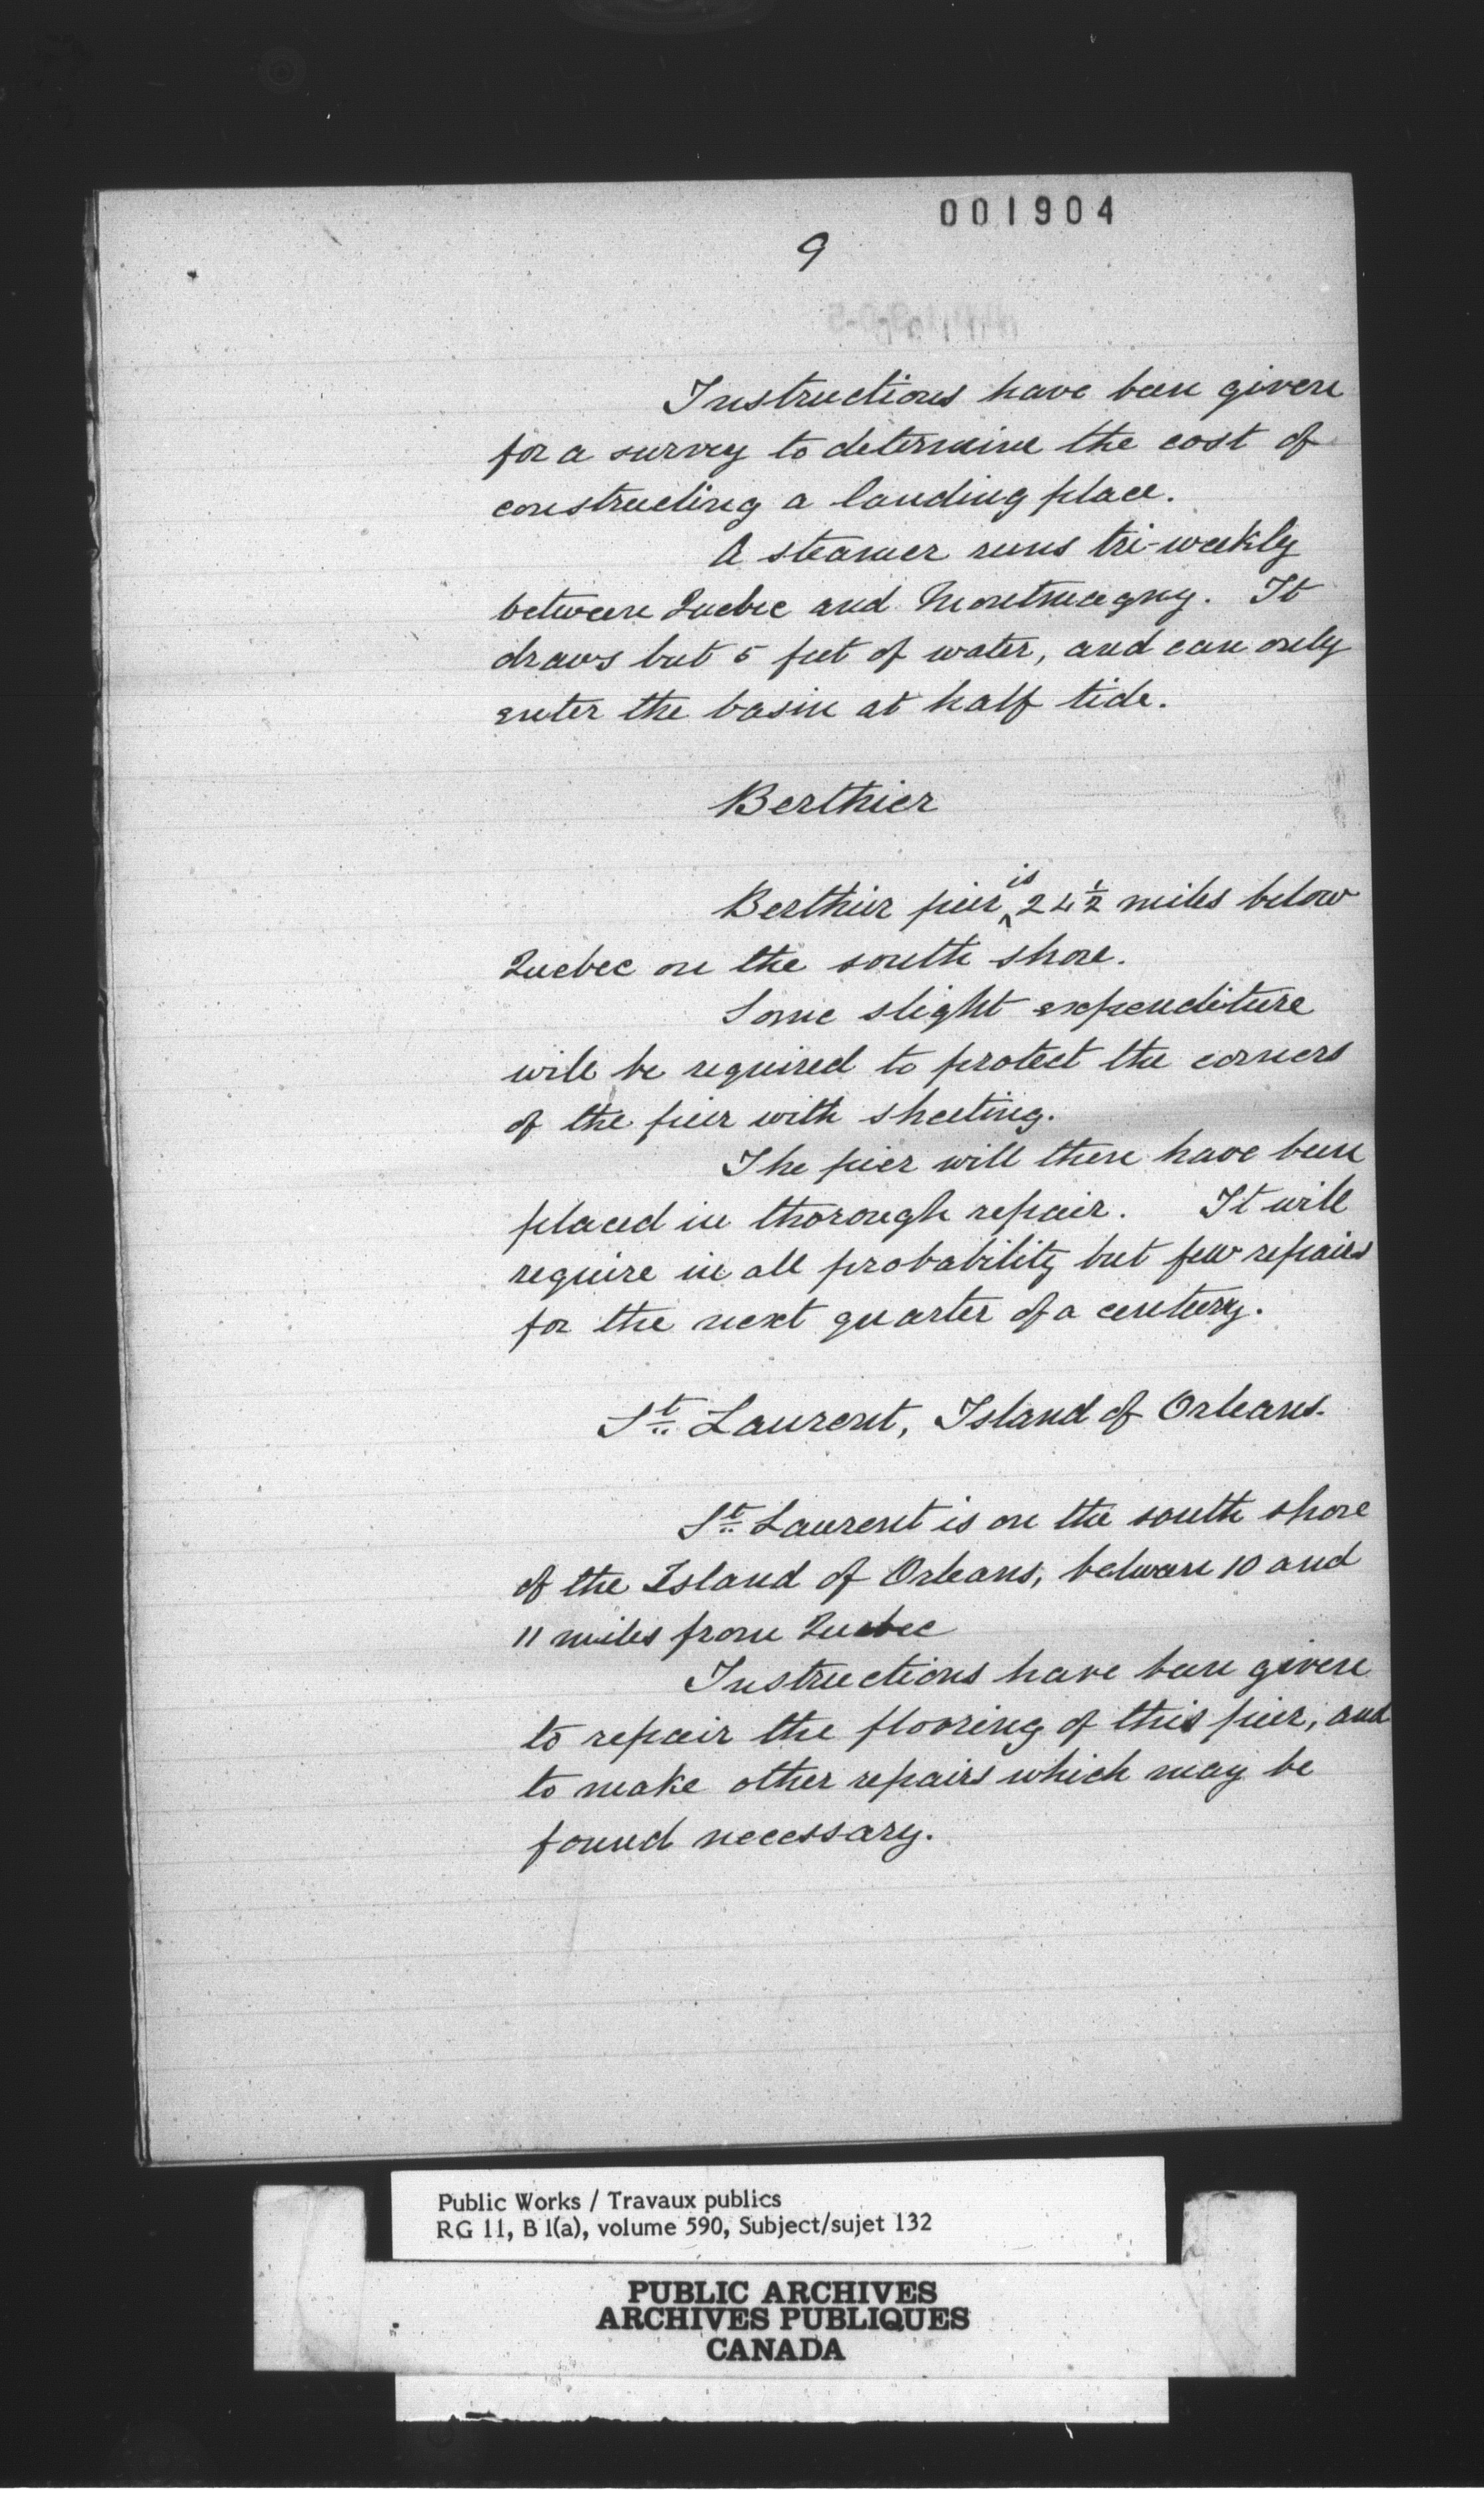 001904
9
Instructions have been given
for a survey to determine the cost of
constructing a landing place.
A steamer runs tri-weekly
between Quebec and Montmagny. It
draws but 5 feet of water, and can only
enter the basin at half tide.
Berthier
Berthier pier is 24½ miles below
Quebec on the south shore.
Some slight expenditure
will be required to protect the corners
of the pier with sheeting.
The pier will then have been
placed in thorough repair. It will
require in all probability but few repairs
for the next quarter of a century.
St Laurent, Island of Orleans.
St Laurent is on the south shore
of the Island of Orleans, between 10 and
11 miles from Quebec
Instructions have been given
to repair the flooring of this pier, and
to make other repairs which may be
found necessary.
Public Works / Travaux publics
RG 11, B 1(a), volume 590, Subject/sujet 132
PUBLIC ARCHIVES
ARCHIVES PUBLIQUES
CANADA